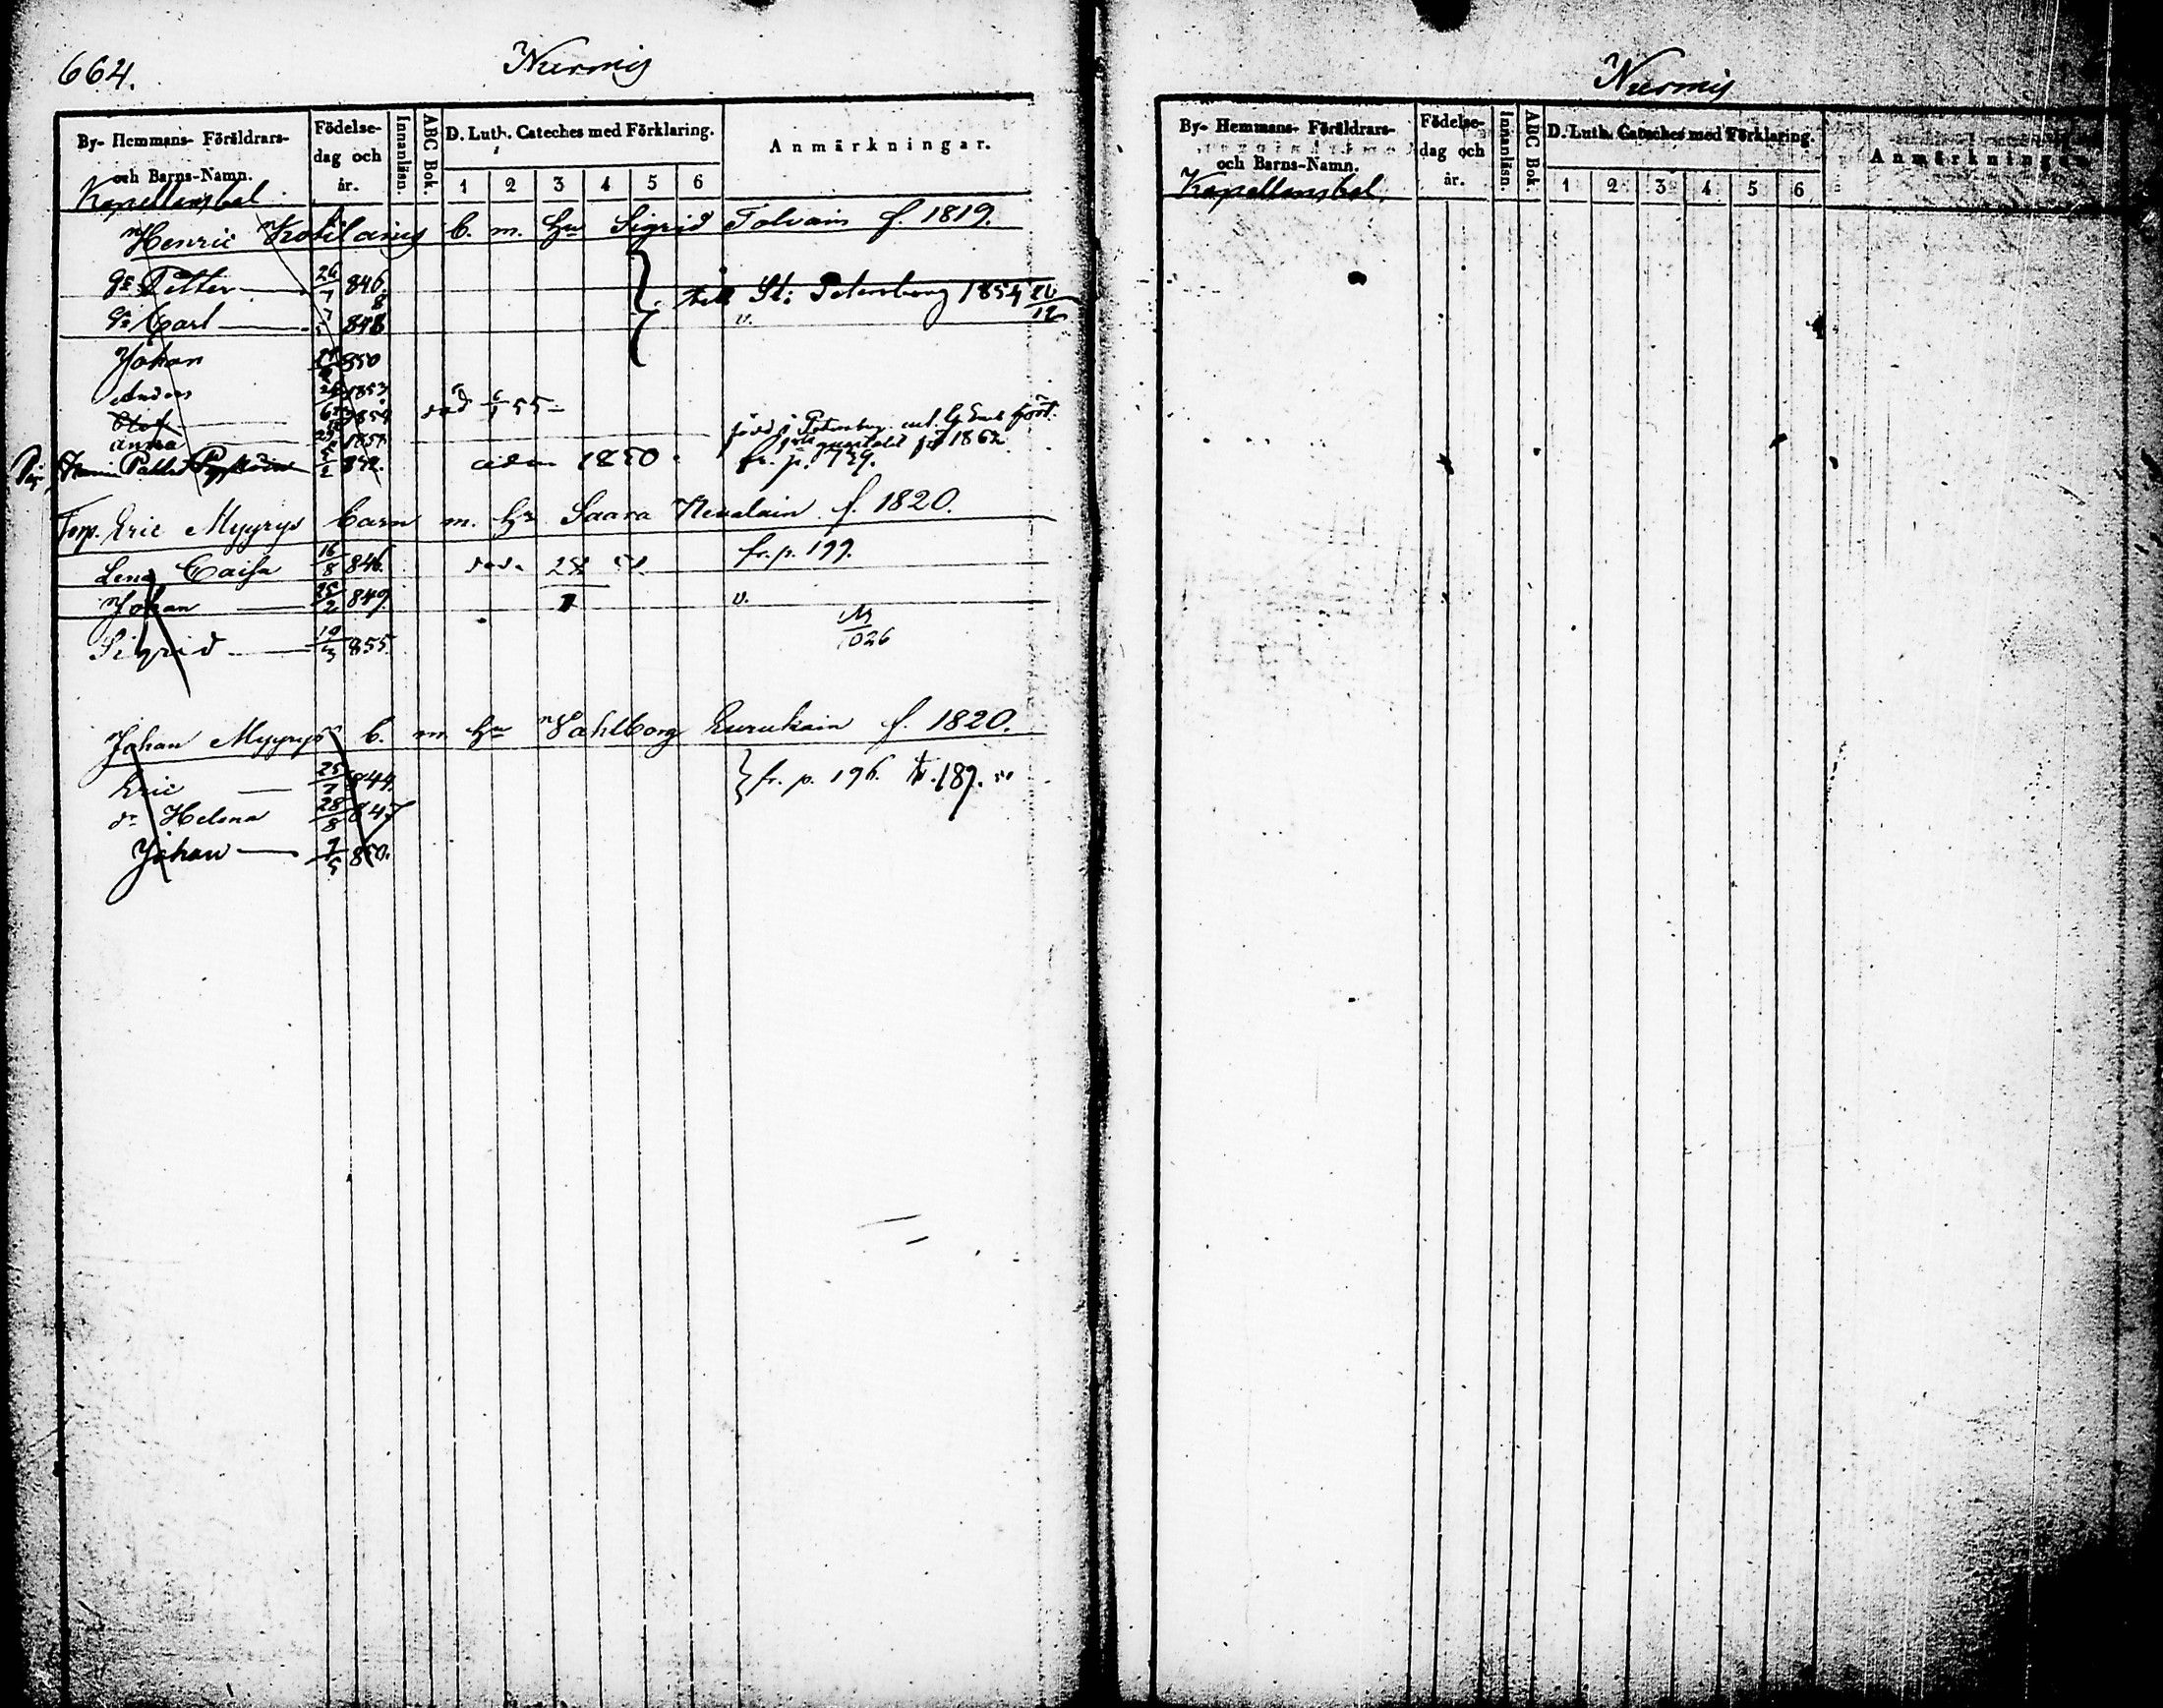 664.
Nurmis
By- Hemmans- Föräldrars- och Barns-Namn.
Födelse-dag och år.
Innanläsn.
ABC Bok.
D. Luth. Cateches med Förklaring.
1 2 3 4 5 6
Anmärkningar.
Kapellansbol
Henric Kotilains b. m. hu Sigrid Tolvain f. 1819.
gs Petter 26/7 846.
gs Carl 848 v.
till St: Petersburg 1854 20/12
Johan 850
Anders 1853
Olof 1854 död 55
Anna
Pahl 852. sedan 1850. fr. p. 739.
1862
Torp. Eric Myyrys barn m. hu Saara Nevalain f. 1820.
Lena Caisa 16/8 846. fr. p. 199.
Johan 25/2 849. v.
Sigrid 19/3 855.
M/1026
Johan Myyrys b. m. hu Vahlborg Turukain f. 1820.
Eric 25/7 844. fr. p. 196. t. 189.
dr Helena 28/8 847
Johan 9/5 850.
Nurmis
By- Hemmans- Föräldrars- och Barns-Namn.
Födelse-dag och år.
Innanläsn.
ABC Bok.
D. Luth. Cateches med Förklaring.
1 2 3 4 5 6
Anmärkningar.
Kapellansbol.